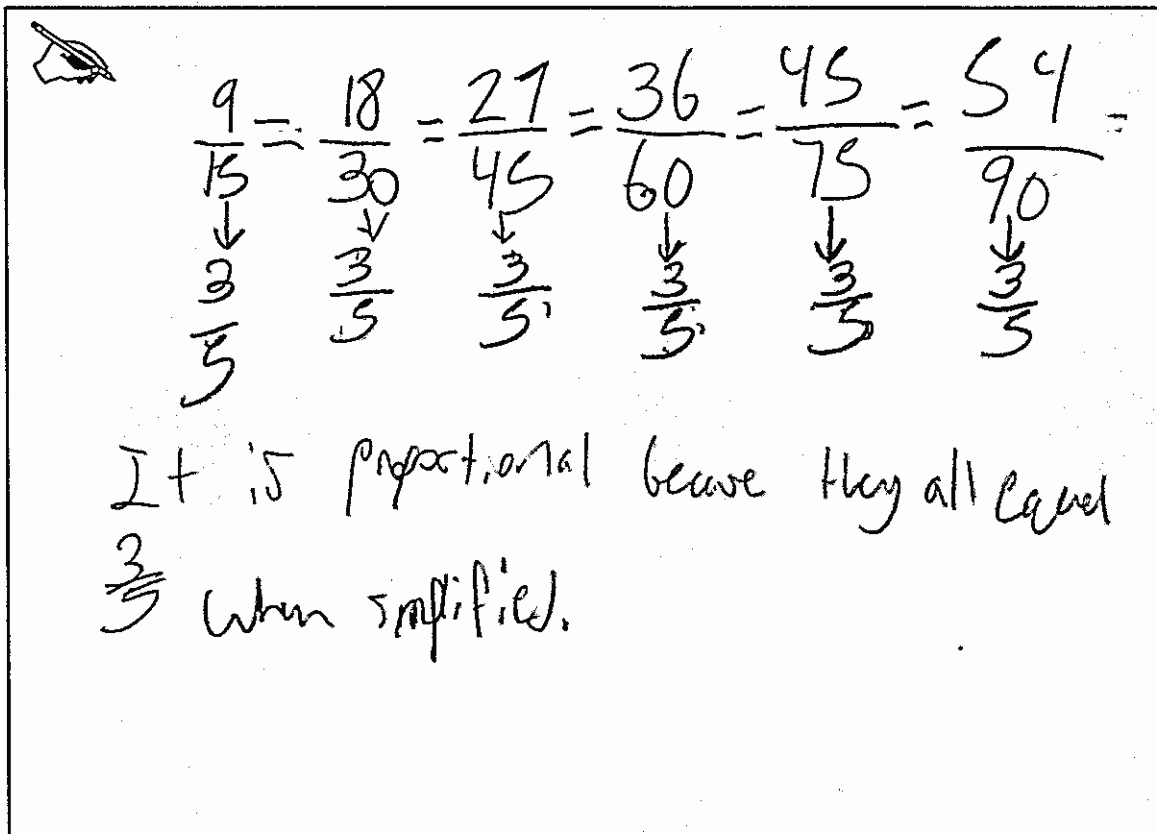 9/15 = 18/30 = 27/45 = 36/60 = 45/75 = 54/90 =
3/5 3/5 3/5 3/5 3/5 3/5
It is proportional because they all equal
3/5 when simplified.